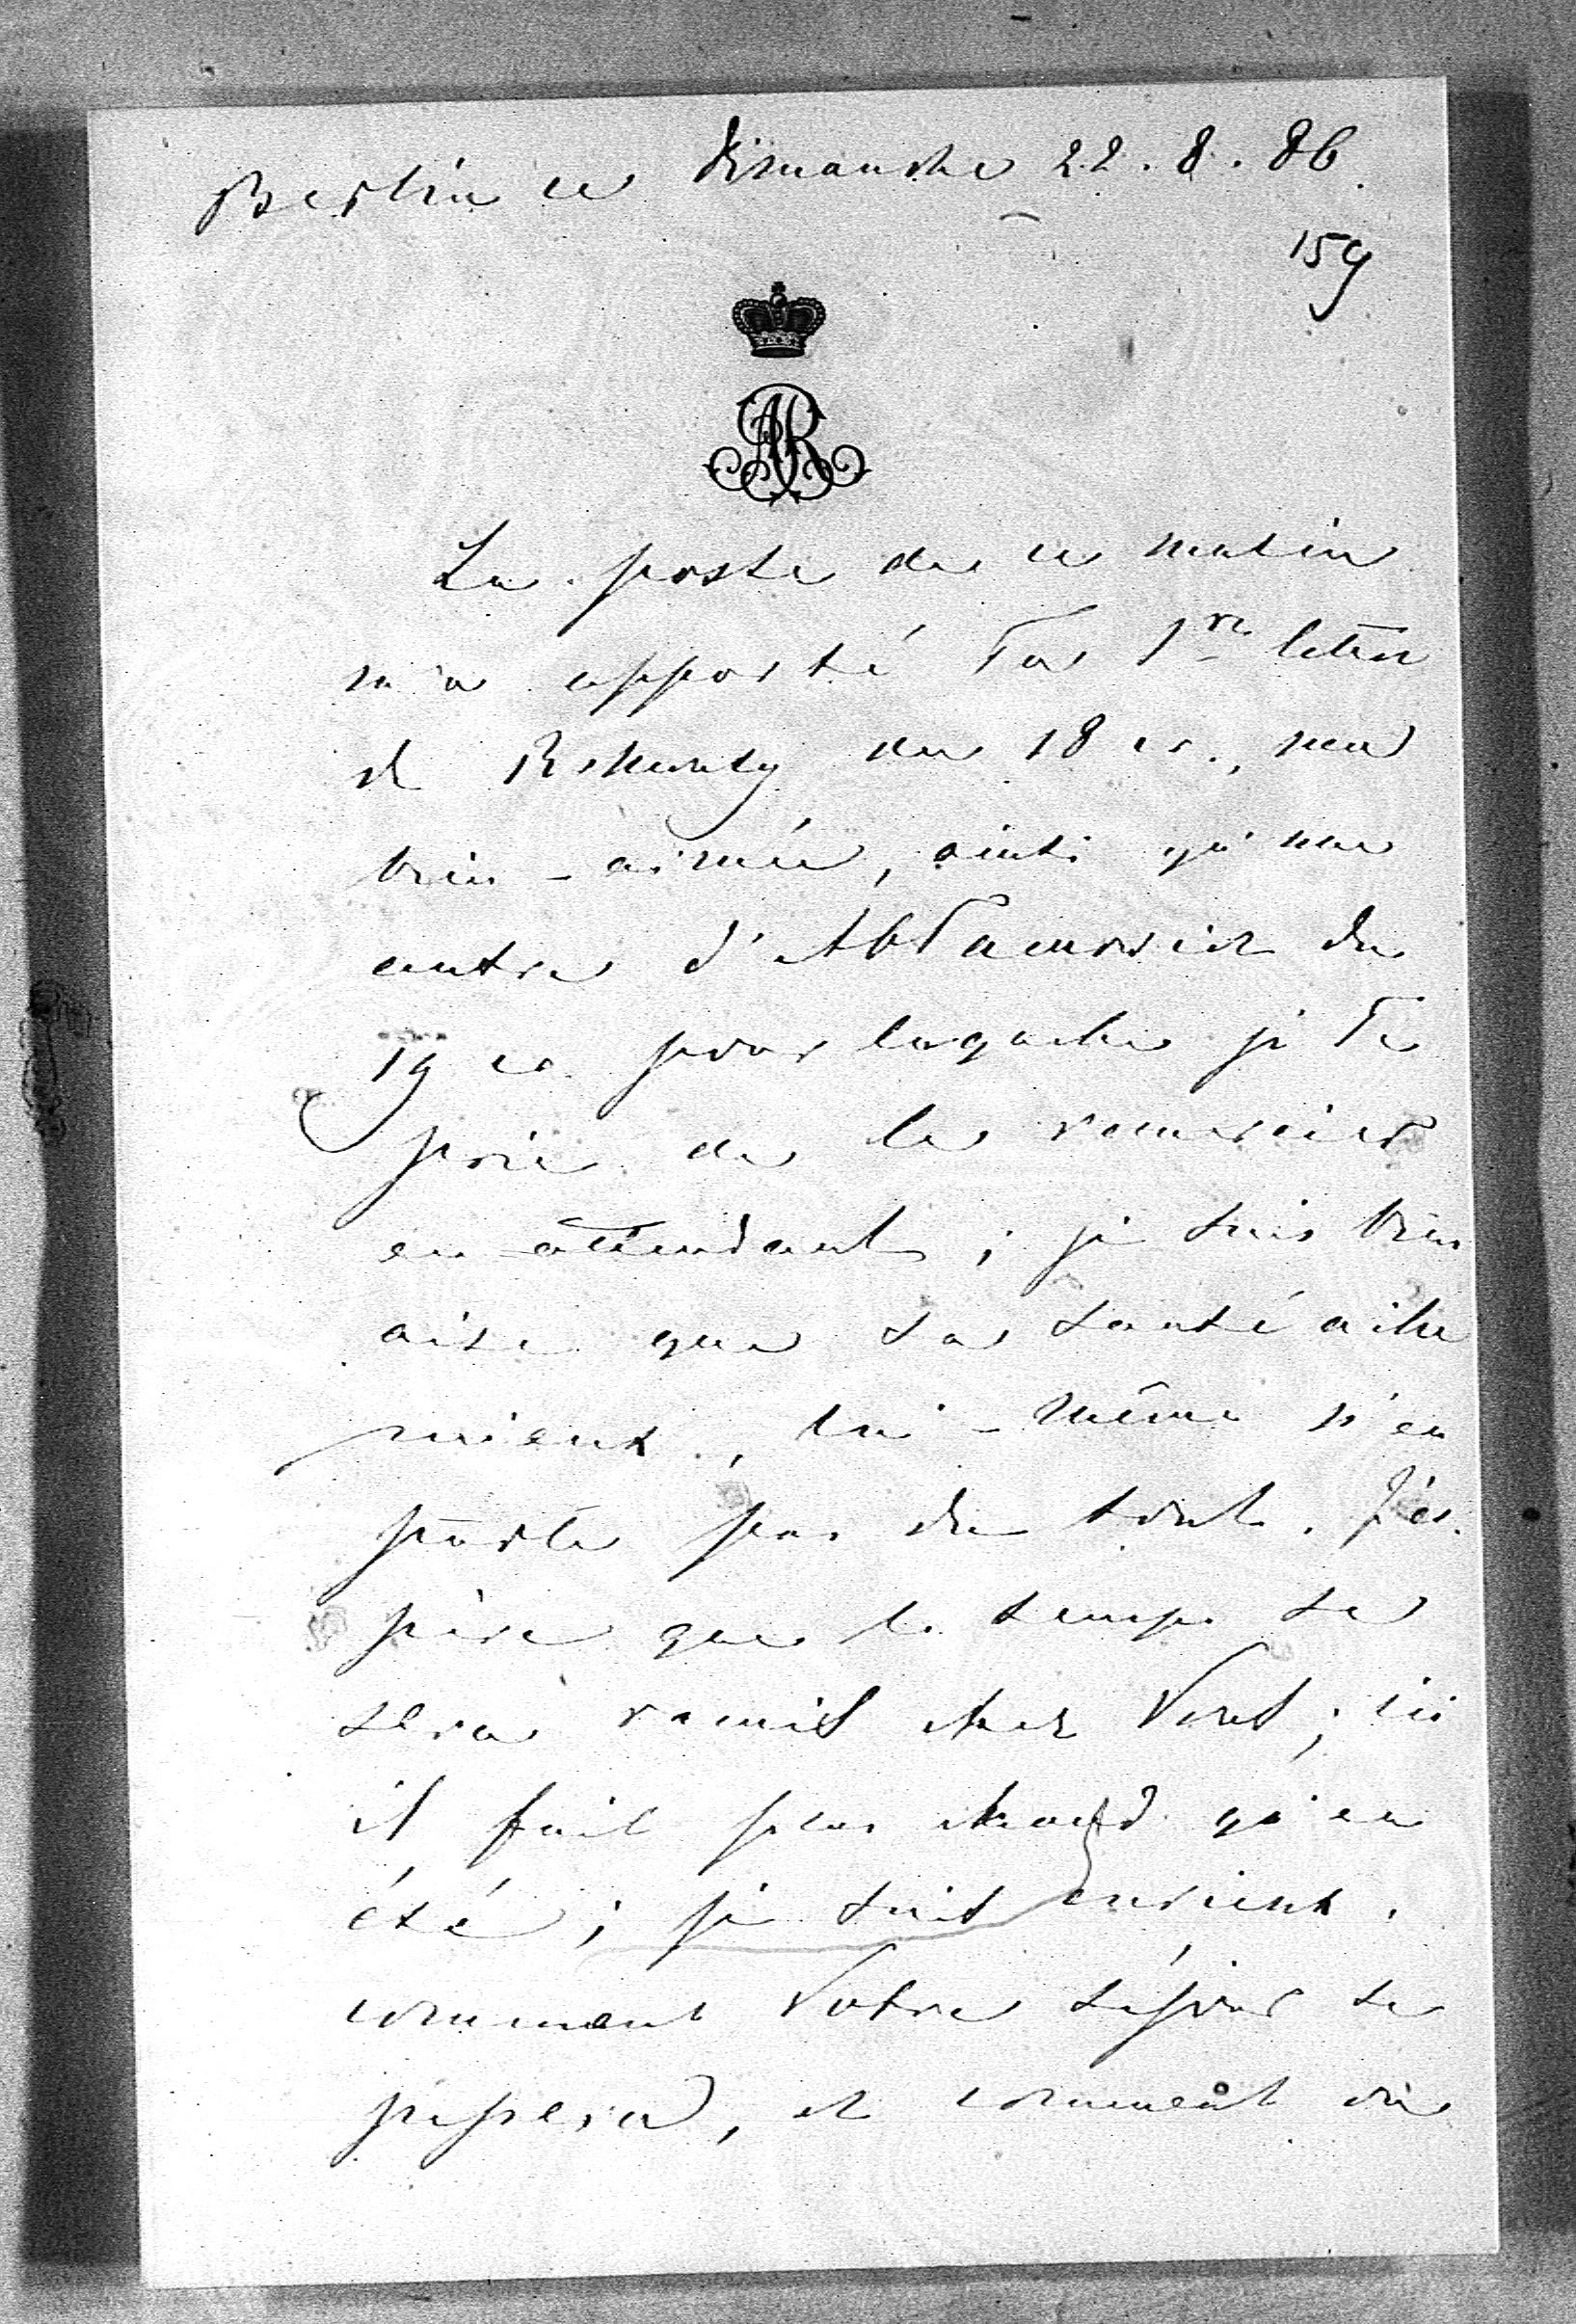 Berlin ce Dimanche 22.8.86.
159
AR
La poste de ce matin
m'a apporté Ta 1re lettre
de du 18 cr., ma
bien-aimée, ainsi qu'une
autre d' du
19 cr. pour laquelle je Te
prie de le remercier
en attendant ; je suis bien
aise que sa santé aille
mieux, lui-même n'en
parle pas du tout. J'es-
père que le temps se
sera remis chez Vous ; ici
il fait plus chaud qu'en
été ; je suis curieux.
comment Votre séjour se
passera, et comment on